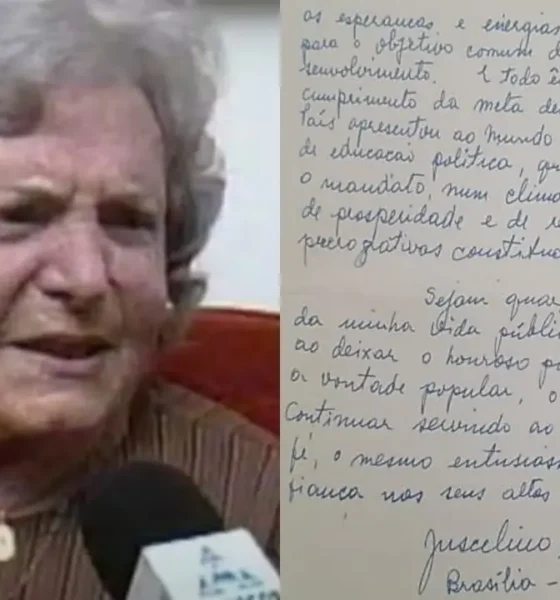 as esperanças e energias
para o objetivo comum d
senvolvimento. E todo ê
cumprimento da meta de
País apresentou ao mundo
de educação política, qu
o mandato, num clima
de prosperidade e de re
prerogativas constituc
Sejam quai
da minha vida públi
ao deixar o honroso po
a vontade popular, o
Continuar servindo ao
fé, o mesmo entusias
fiança nos seus altos
Juscelino
Brasília -